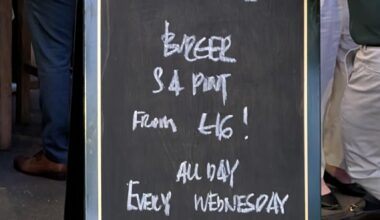 BURGER
& A PINT
FROM £16!
ALL DAY
EVERY WEDNESDAY